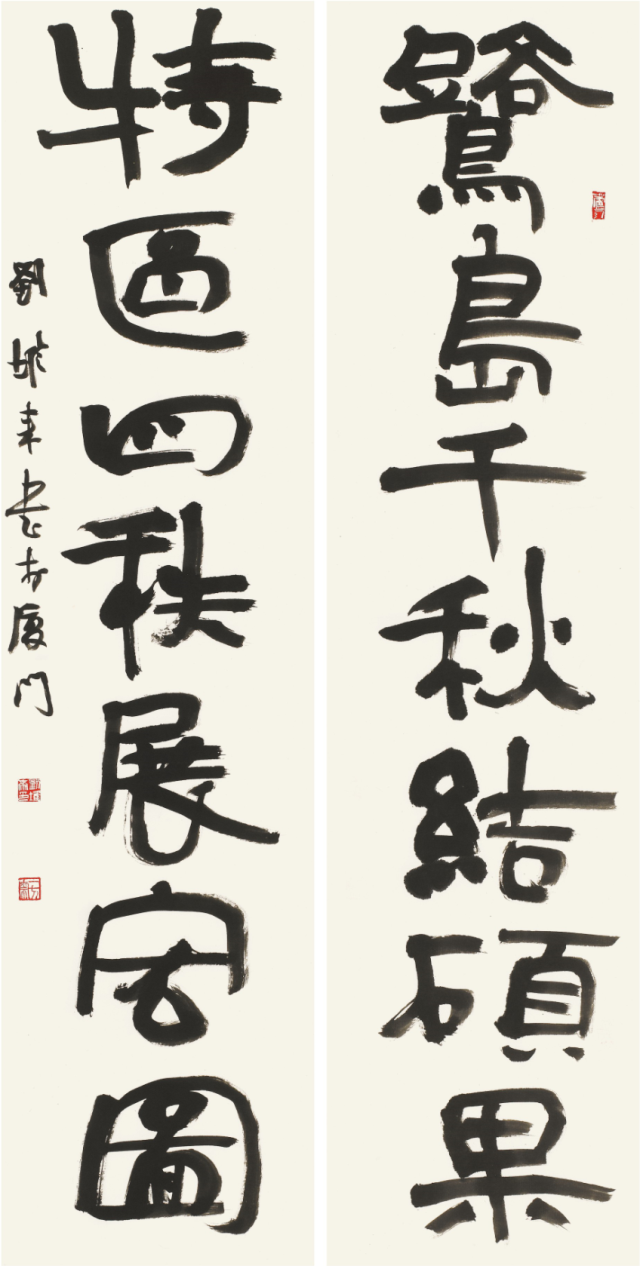 鷺島千秋結碩果
特區四秩展宏圖
劉堆來書於廈門